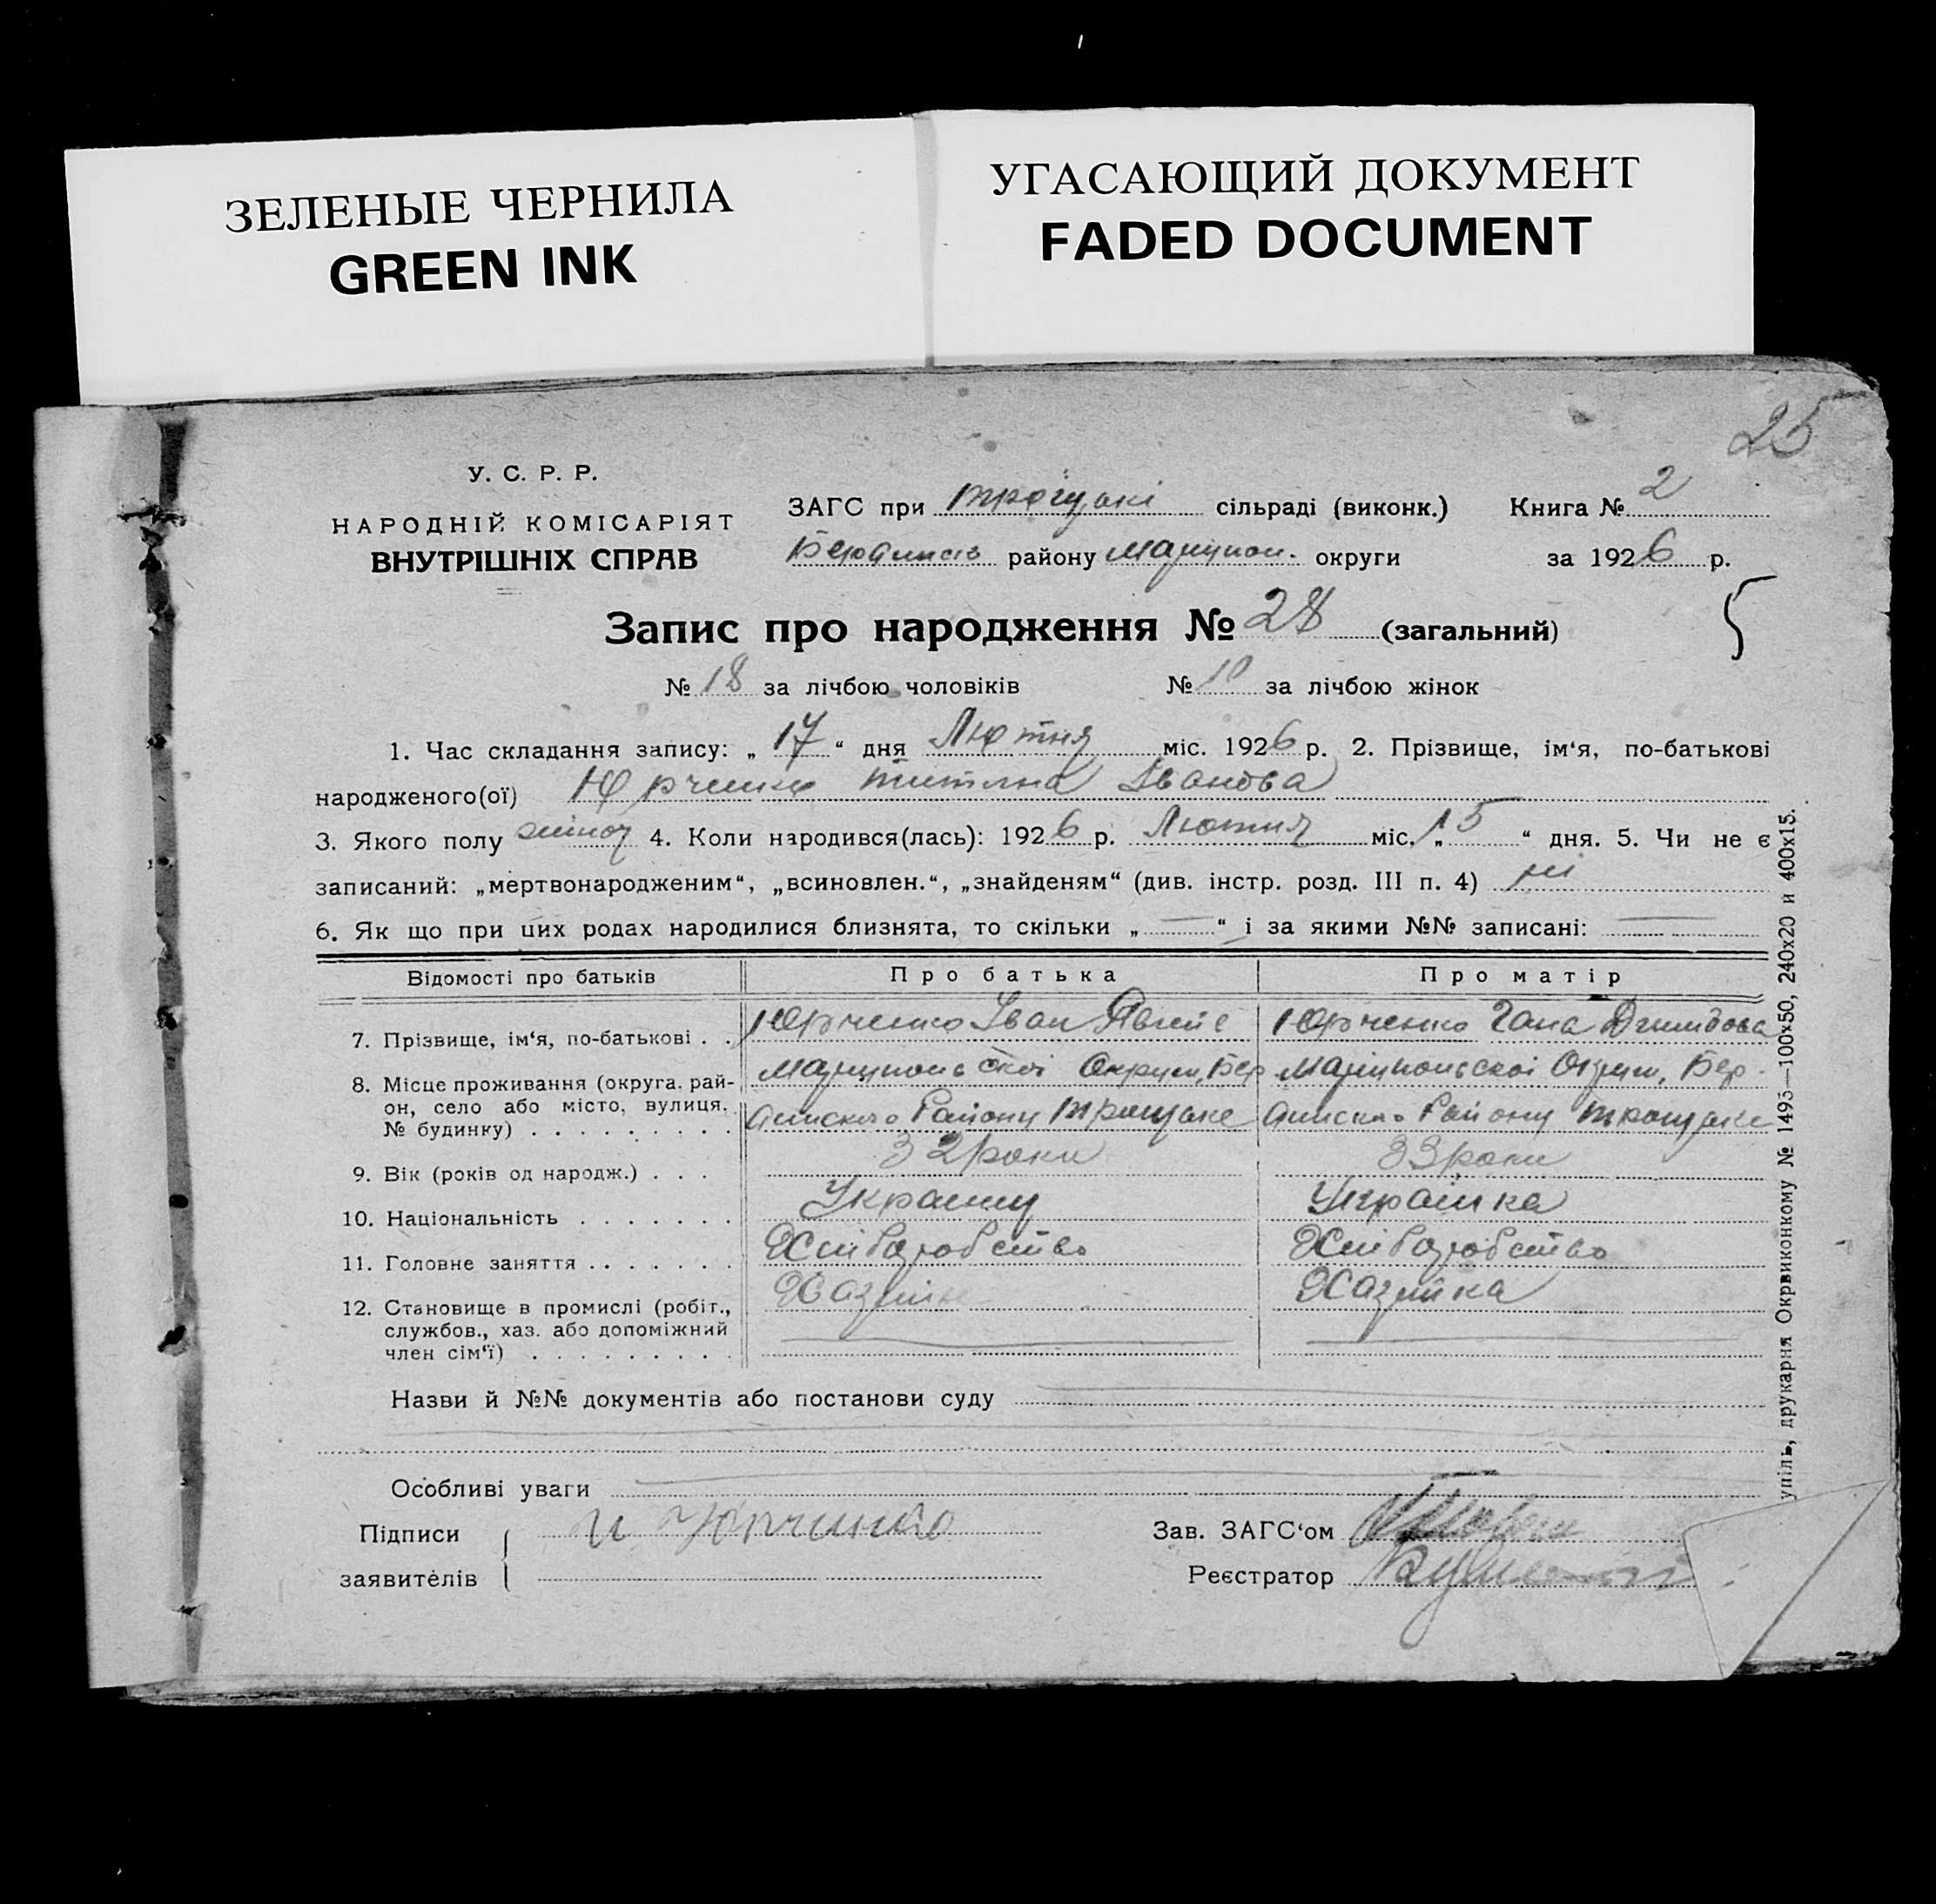 ЗЕЛЕНЫЕ ЧЕРНИЛА
GREEN INK
УГАСАЮЩИЙ ДОКУМЕНТ
FADED DOCUMENT
25
У. С. Р. Р.
НАРОДНІЙ КОМІСАРІЯТ
ВНУТРІШНІХ СПРАВ
ЗАГС при сільраді (виконк.) Книга № 2
району Маріупол. округи за 1926 р.
Запис про народження № 28 (загальний)
№ 18 за лічбою чоловіків № 10 за лічбою жінок
1. Час складання запису: „ 17 “ дня Лютня міс. 1926 р. 2. Прізвище, ім‘я, по-батькові
народженого(ої) Юрченко Іванова
3. Якого полу жіноч 4. Коли народився(лась): 1926 р. Лютня міс. „ 15 “ дня. 5. Чи не є
записаний: „мертвонародженим“, „всиновлен.“, „знайденям“ (див. інстр. розд. III п. 4) ні
6. Як що при цих родах народилися близнята, то скільки „ “ і за якими №№ записані:
Відомості про батьків Про батька Про матір
7. Прізвище, ім‘я, по-батькові . . Юрченко Іван Юрченко Гана
8. Місце проживання (округа. рай- Маріупольскоі Округи, Бер Маріупольскоі Округи, Бер
он, село або місто, вулиця. Району Району
№ будинку) . . . . . . . . .
9. Вік (років од народж.) . . . 32 роки 33 роки
10. Національність . . . . . . . Українц Українка
11. Головне заняття . . . . . . Хліборобство Хліборобство
12. Становище в промислі (робіт., Хазяїн Хазяйка
службов., хаз. або допоміжний
член сім‘ї) . . . . . . . . .
Назви й №№ документів або постанови суду
Особливі уваги
Підписи И Юрченко Зав. ЗАГС‘ом
заявителів Реєстратор
упіль, друкарня Окрвиконкому № 1493—100х50, 240х20 и 400х15.